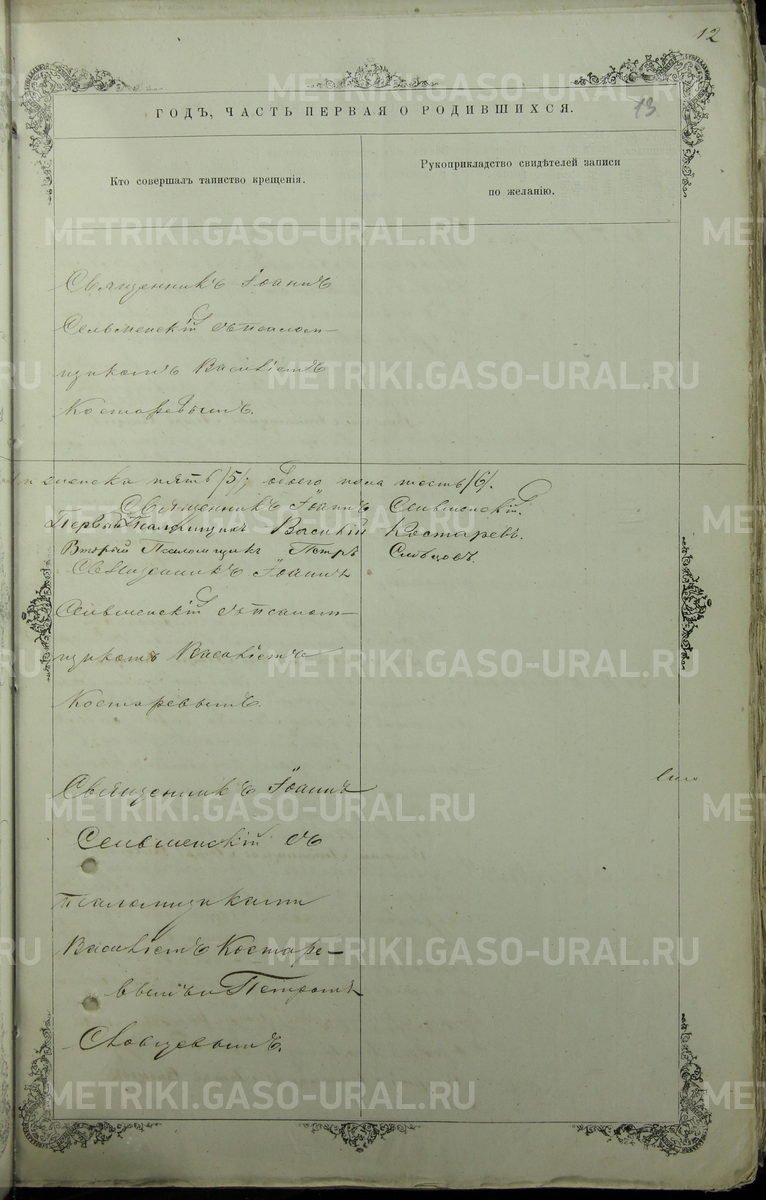 12
13
ГОДЪ, ЧАСТЬ ПЕРВАЯ О РОДИВШИХСЯ.
Кто совершалъ таинство крещенія.
Рукоприкладство свидѣтелей записи
по желанію.
Священникъ Іоаннъ
Сельменскій съ псалом-
щикомъ Василіемъ
Костаревымъ.
женска пять /5/, обоего пола шесть /6/.
Священникъ Іоаннъ Сельменскій.
Первый Псаломщикъ Василій Костаревъ.
Второй Псаломщикъ Петръ
Священникъ Іоаннъ
Сельменскій съ псалом-
щикомъ Василіемъ
Костаревымъ.
Священникъ Іоаннъ
Сельменскій съ
псаломщиками
Василіемъ Костаре-
вымъ и Петромъ
METRIKI.GASO-URAL.RU